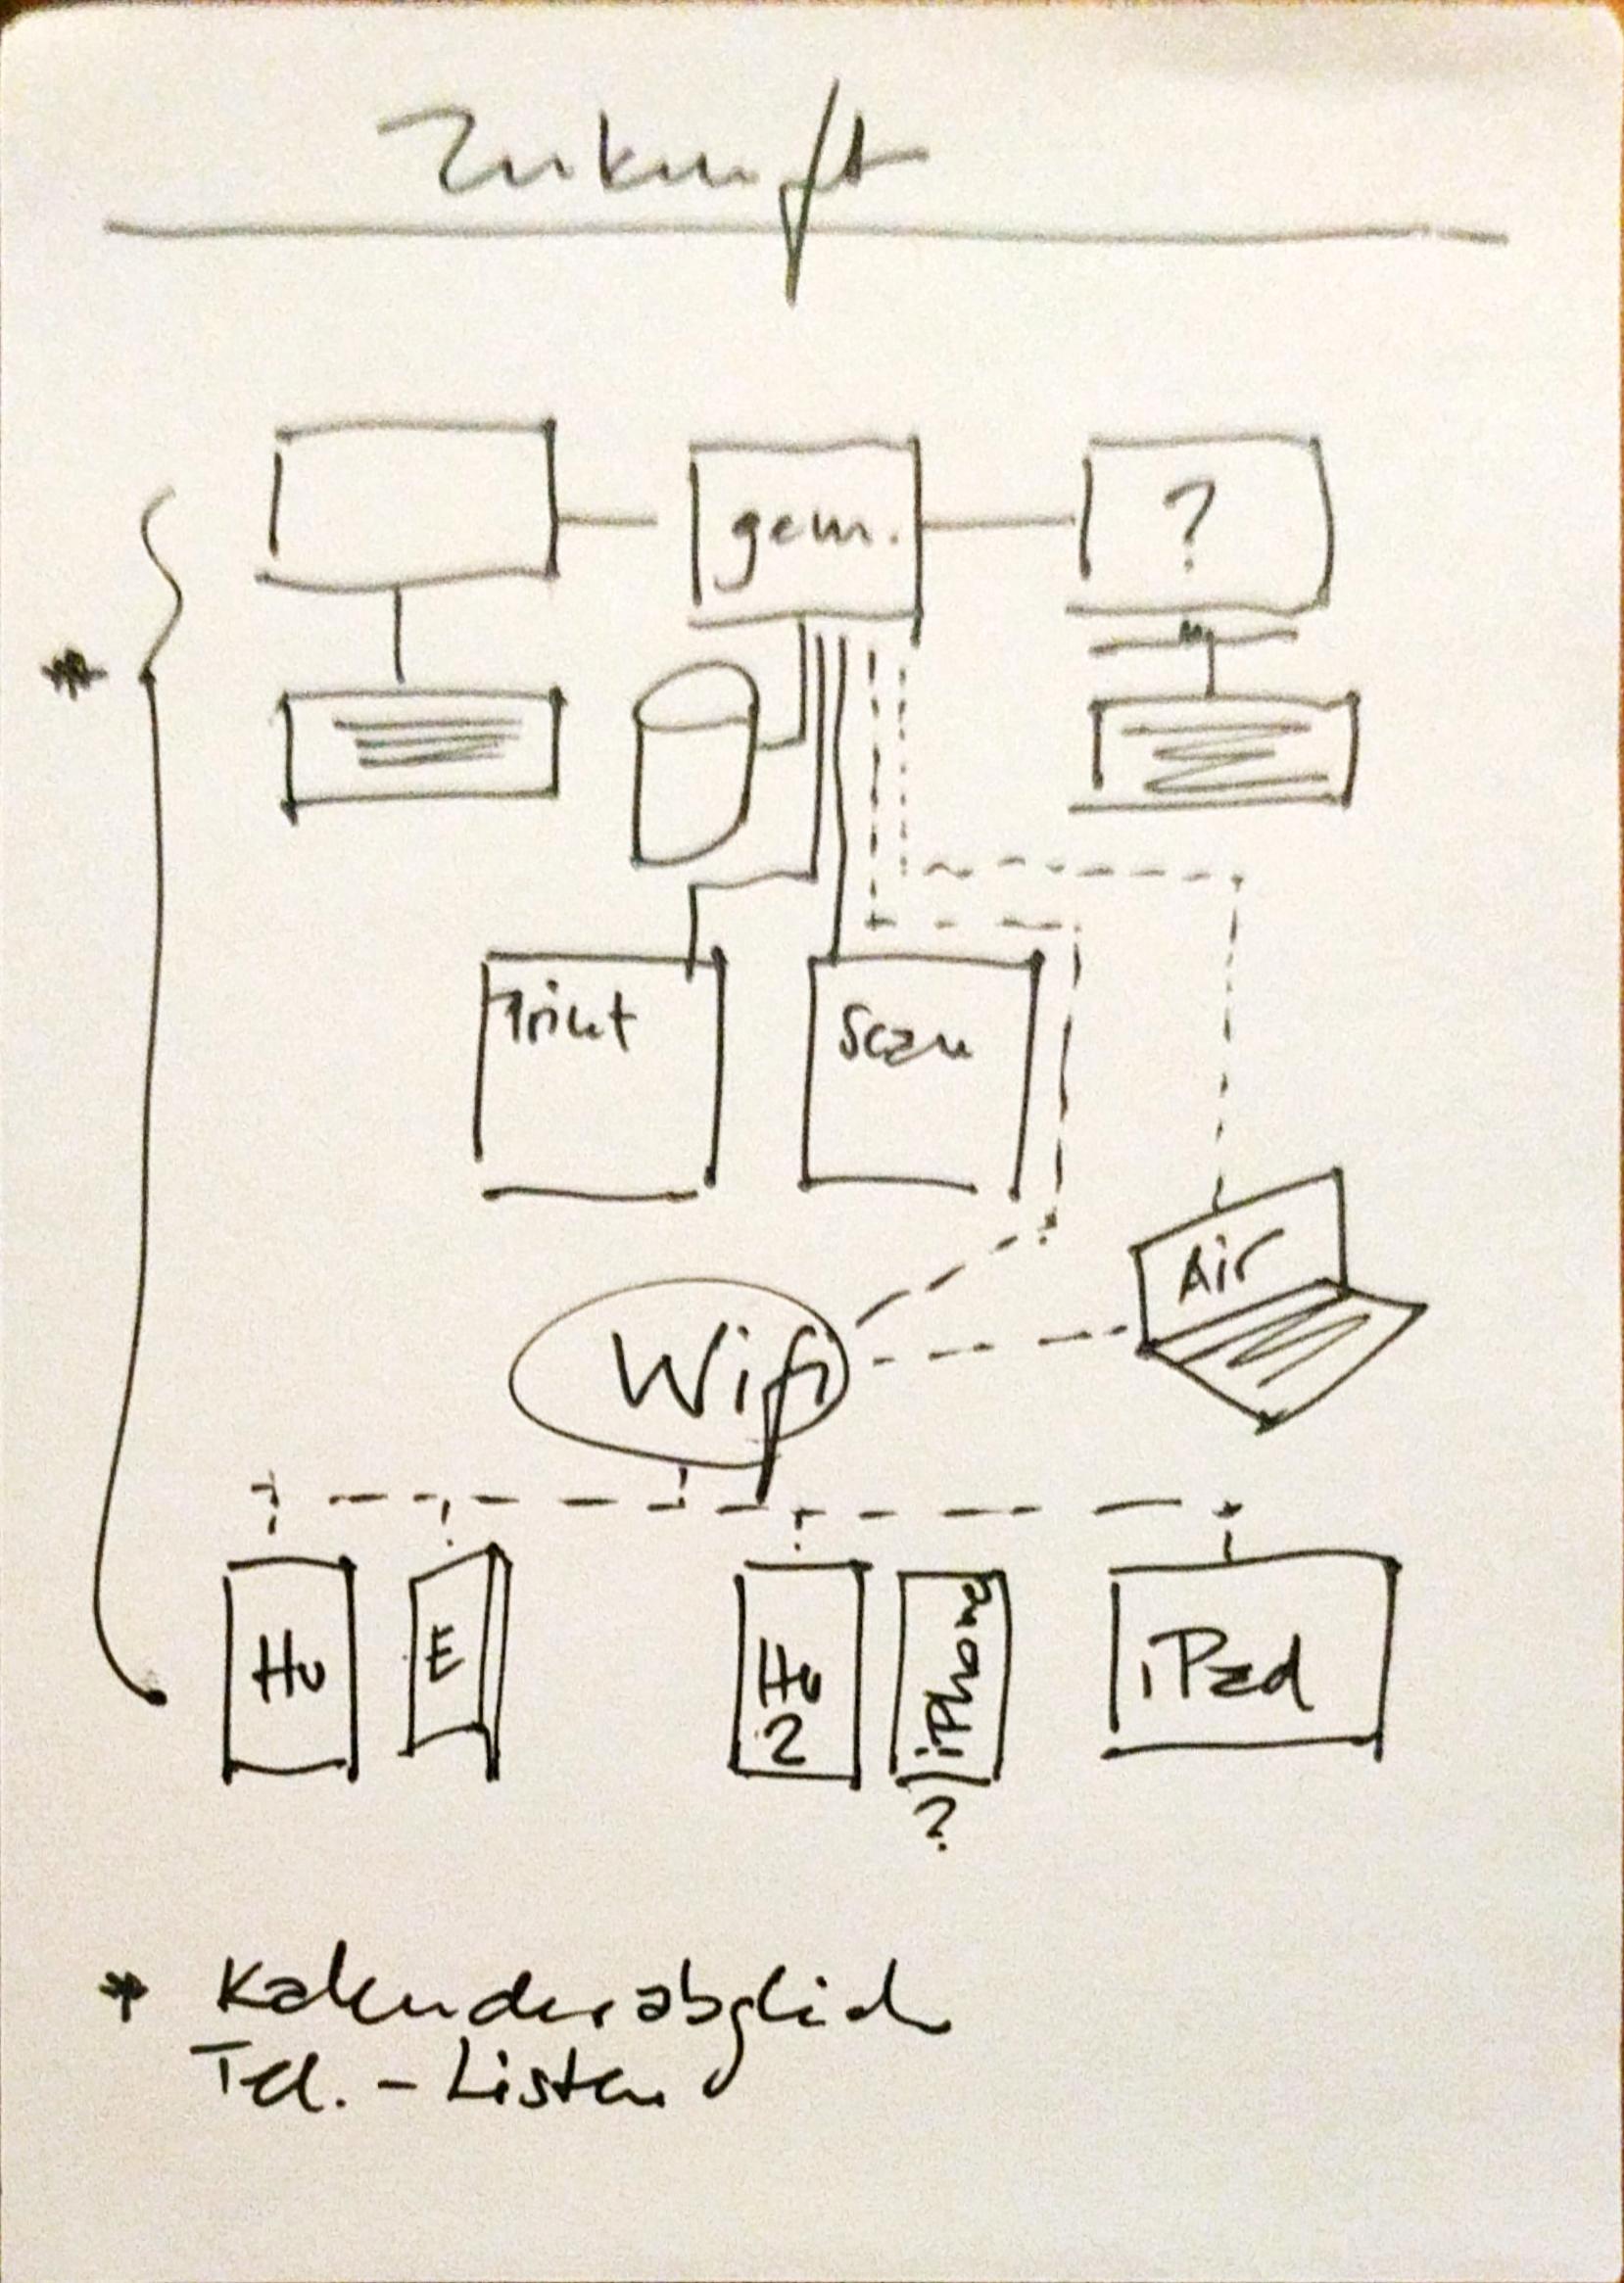 Zukunft
gem.
?
Print
Scan
Air
Wifi
Hu
E
Hu
2
iPhone
?
iPad
* Kalenderabgleich
Tel. - Listen